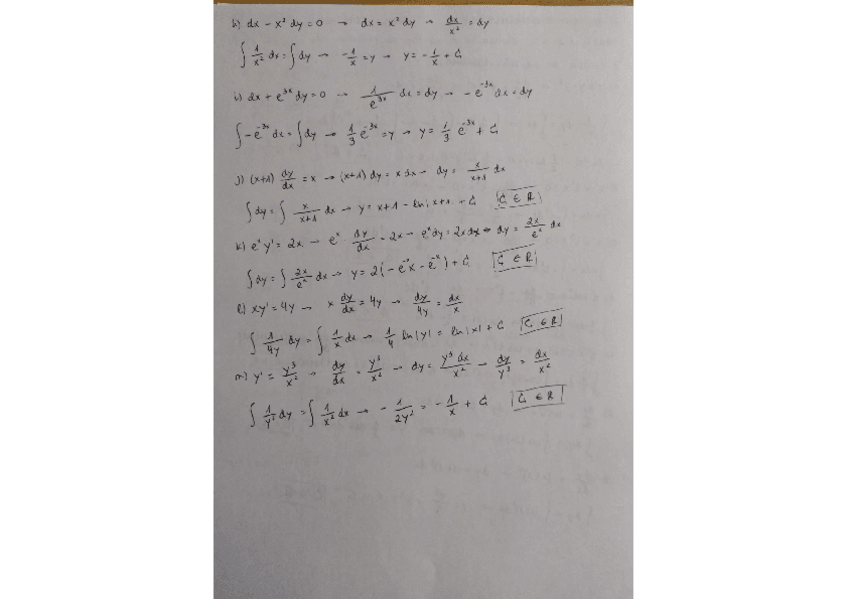 h) dx - x² dy = 0 → dx = x² dy → dx/x² = dy
∫ 1/x² dx = ∫ dy → -1/x = y → y = -1/x + C
i) dx + e^3x dy = 0 → 1/e^3x dx = dy → -e^-3x dx = dy
∫ -e^-3x dx = ∫ dy → 1/3 e^-3x = y → y = 1/3 e^-3x + C
j) (x+1) dy/dx = x → (x+1) dy = x dx → dy = x/x+1 dx
∫ dy = ∫ x/x+1 dx → y = x+1 - ln|x+1| + C C ∈ R
k) e^x y' = 2x → e^x · dy/dx = 2x → e^x dy = 2x dx → dy = 2x/e^x dx
∫ dy = ∫ 2x/e^x dx → y = 2(-e^-x x - e^-x) + C C ∈ R
l) xy' = 4y → x dy/dx = 4y → dy/4y = dx/x
∫ 1/4y dy = ∫ 1/x dx → 1/4 ln|y| = ln|x| + C C ∈ R
m) y' = y³/x² → dy/dx = y³/x² → dy = y³ dx/x² → dy/y³ = dx/x²
∫ 1/y³ dy = ∫ 1/x² dx → -1/2y² = -1/x + C C ∈ R